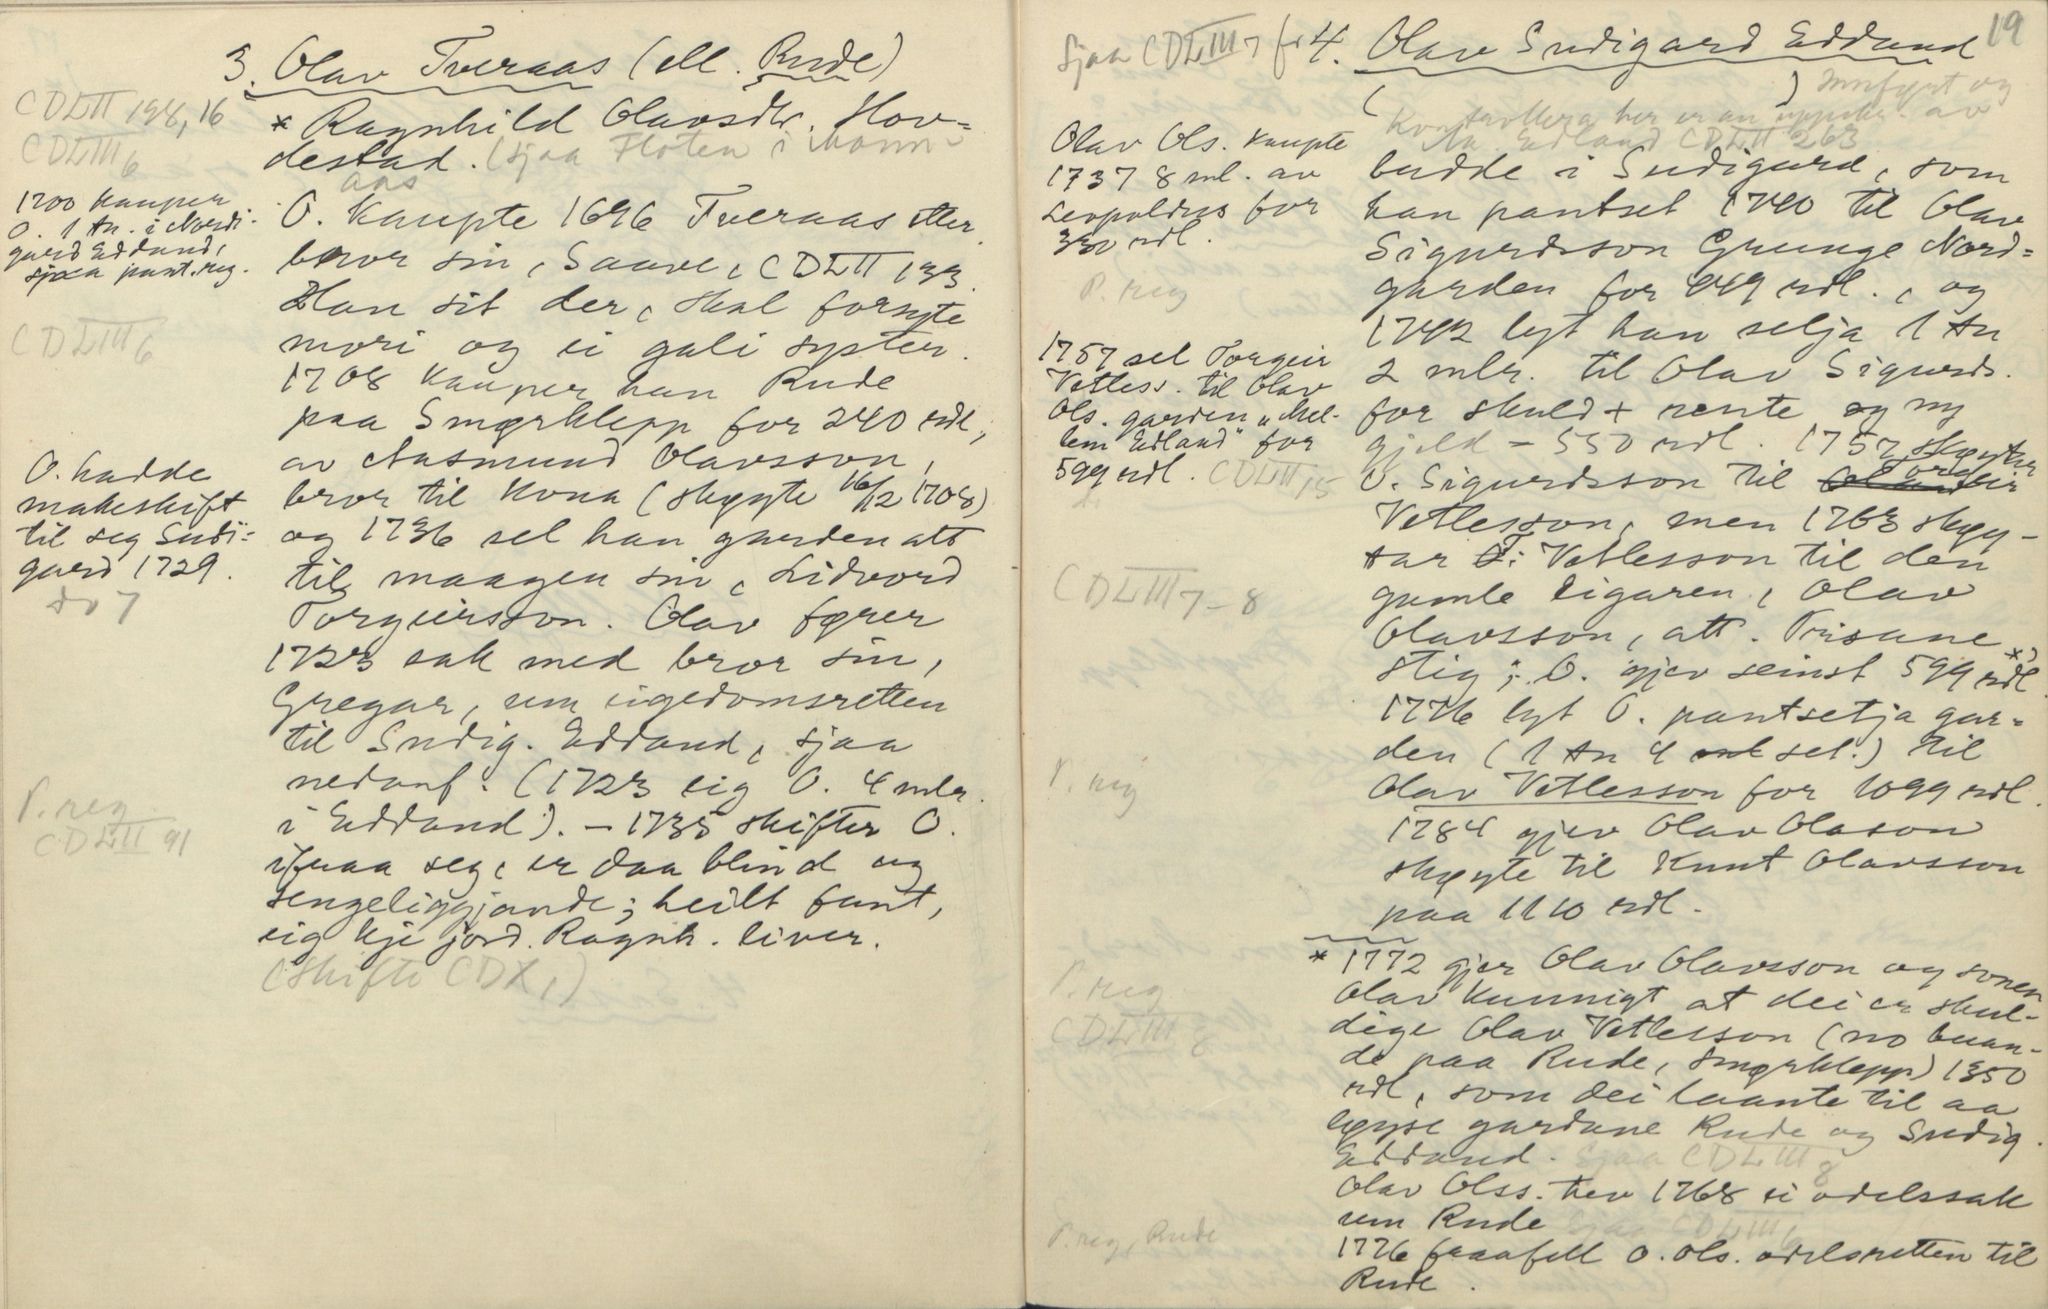 3. Olav Tveraas (ell. Rude)
CDLII 198, 16
CDLIII 6
* Ragnhild Olavsdtr. Hov-
destad. (sjaa Floten i Mann-
aas
1700 kauper
O. 1 tn. i Nordi-
gard Eddand,
sjaa pant.reg.
O. kaupte 1696 Tveraas etter
bror sin, Saave, CDLII 133.
Han sit der, skal forsyte
mori og ei gali syster.
CDLIII 6
1708 kauper han Rude
paa Smørklepp for 240 rdl.,
av Aasmund Olavsson,
bror til kona (skøyte 16/12 1708)
og 1736 sel han garden att
til maagen sin, Lidvord
Torgeirsson. Olav fører
1723 sak med bror sin,
Gregar, um eigedomsretten
til Sudig. Eddand, sjaa
nedanf. (1723 eig O. 4 mlr.
i Eddand). - 1735 skifter O.
ifraa seg, er daa blind og
sengeliggjande; heilt fant,
eig kje jord. Ragnh. liver.
(Skifte CDX,1)
O. hadde
makeskift
til seg Sudi-
gard 1729.
do 7
P. reg.
CDLII 91
19
Sjaa CDLIII 7 fr 4. Olav Sudigard Eddand
( ) Innført og
Kontrollera her er an uppskr. av
Aa. Edland CDLII 263
Olav Ols. kaupte
1737 8 ml. av
Leopoldus for
330 rdl.
P. reg
budde i Sudigard, som
han pantset 1740 til Olav
Sigurdsson Grunge Nord-
garden for 449 rdl., og
1742 lyt han selja 1 tn
2 mlr. til Olav Sigurds.
for skuld + rente og ny
gjeld - 550 rdl. 1757 skøyter
O. Sigurdsson til Torgeir
Vetlesson, men 1763 skøy-
tar T. Vetlesson til den
gamle eigaren, Olav
Olavsson, att. Prisane
stig; O. gjev seinst 599 rdl *)
1776 lyt O. pantsetja gar-
den (1 tn 4 set.) til
Olav Vetlesson for 1099 rdl.
1784 gjev Olav Olason
skøyte til Knut Olavsson
paa 1110 rdl.
1757 sel Torgeir
Vetless. til Olav
Ols. garden "Mel-
lem Edland" for
599 rdl. CDLII 15
CDLIII 7-8
P. reg
* 1772 gjer Olav Olavsson og sonen
Olav kunnigt at dei er skul-
dige Olav Vetlesson (no buan-
de paa Rude, Smørklepp) 1350
rdl, som dei laante til aa
løyse gardane Rude og Sudig.
Eddand. Sjaa CDLIII 8
Olav Olss. hev 1768 ei odelssak
um Rude Sjaa CDLIII 6
1776 fraafell O. Ols. odelsretten til
Rude.
P. reg.
CDLIII 8
P. reg, Rude